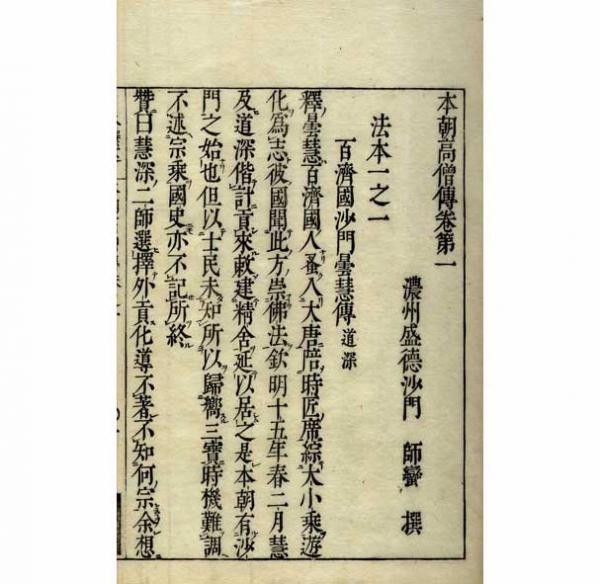 本朝高僧傳卷第一
濃州盛德沙門 師蠻 撰
法本一之一
百濟國沙門曇慧傳 道深
釋曇慧百濟國人蚤入大唐陪時匠席綜大小乘遊
化爲志彼國聞此方崇佛法欽明十五年春二月慧
及道深偕計貢來敕建精舍延以居之是本朝有沙
門之始也但以士民未知所以歸嚮三寶時機難調
不述宗乘國史亦不記所終
贊曰慧深二師選擇外貢化導不著不知何宗余想